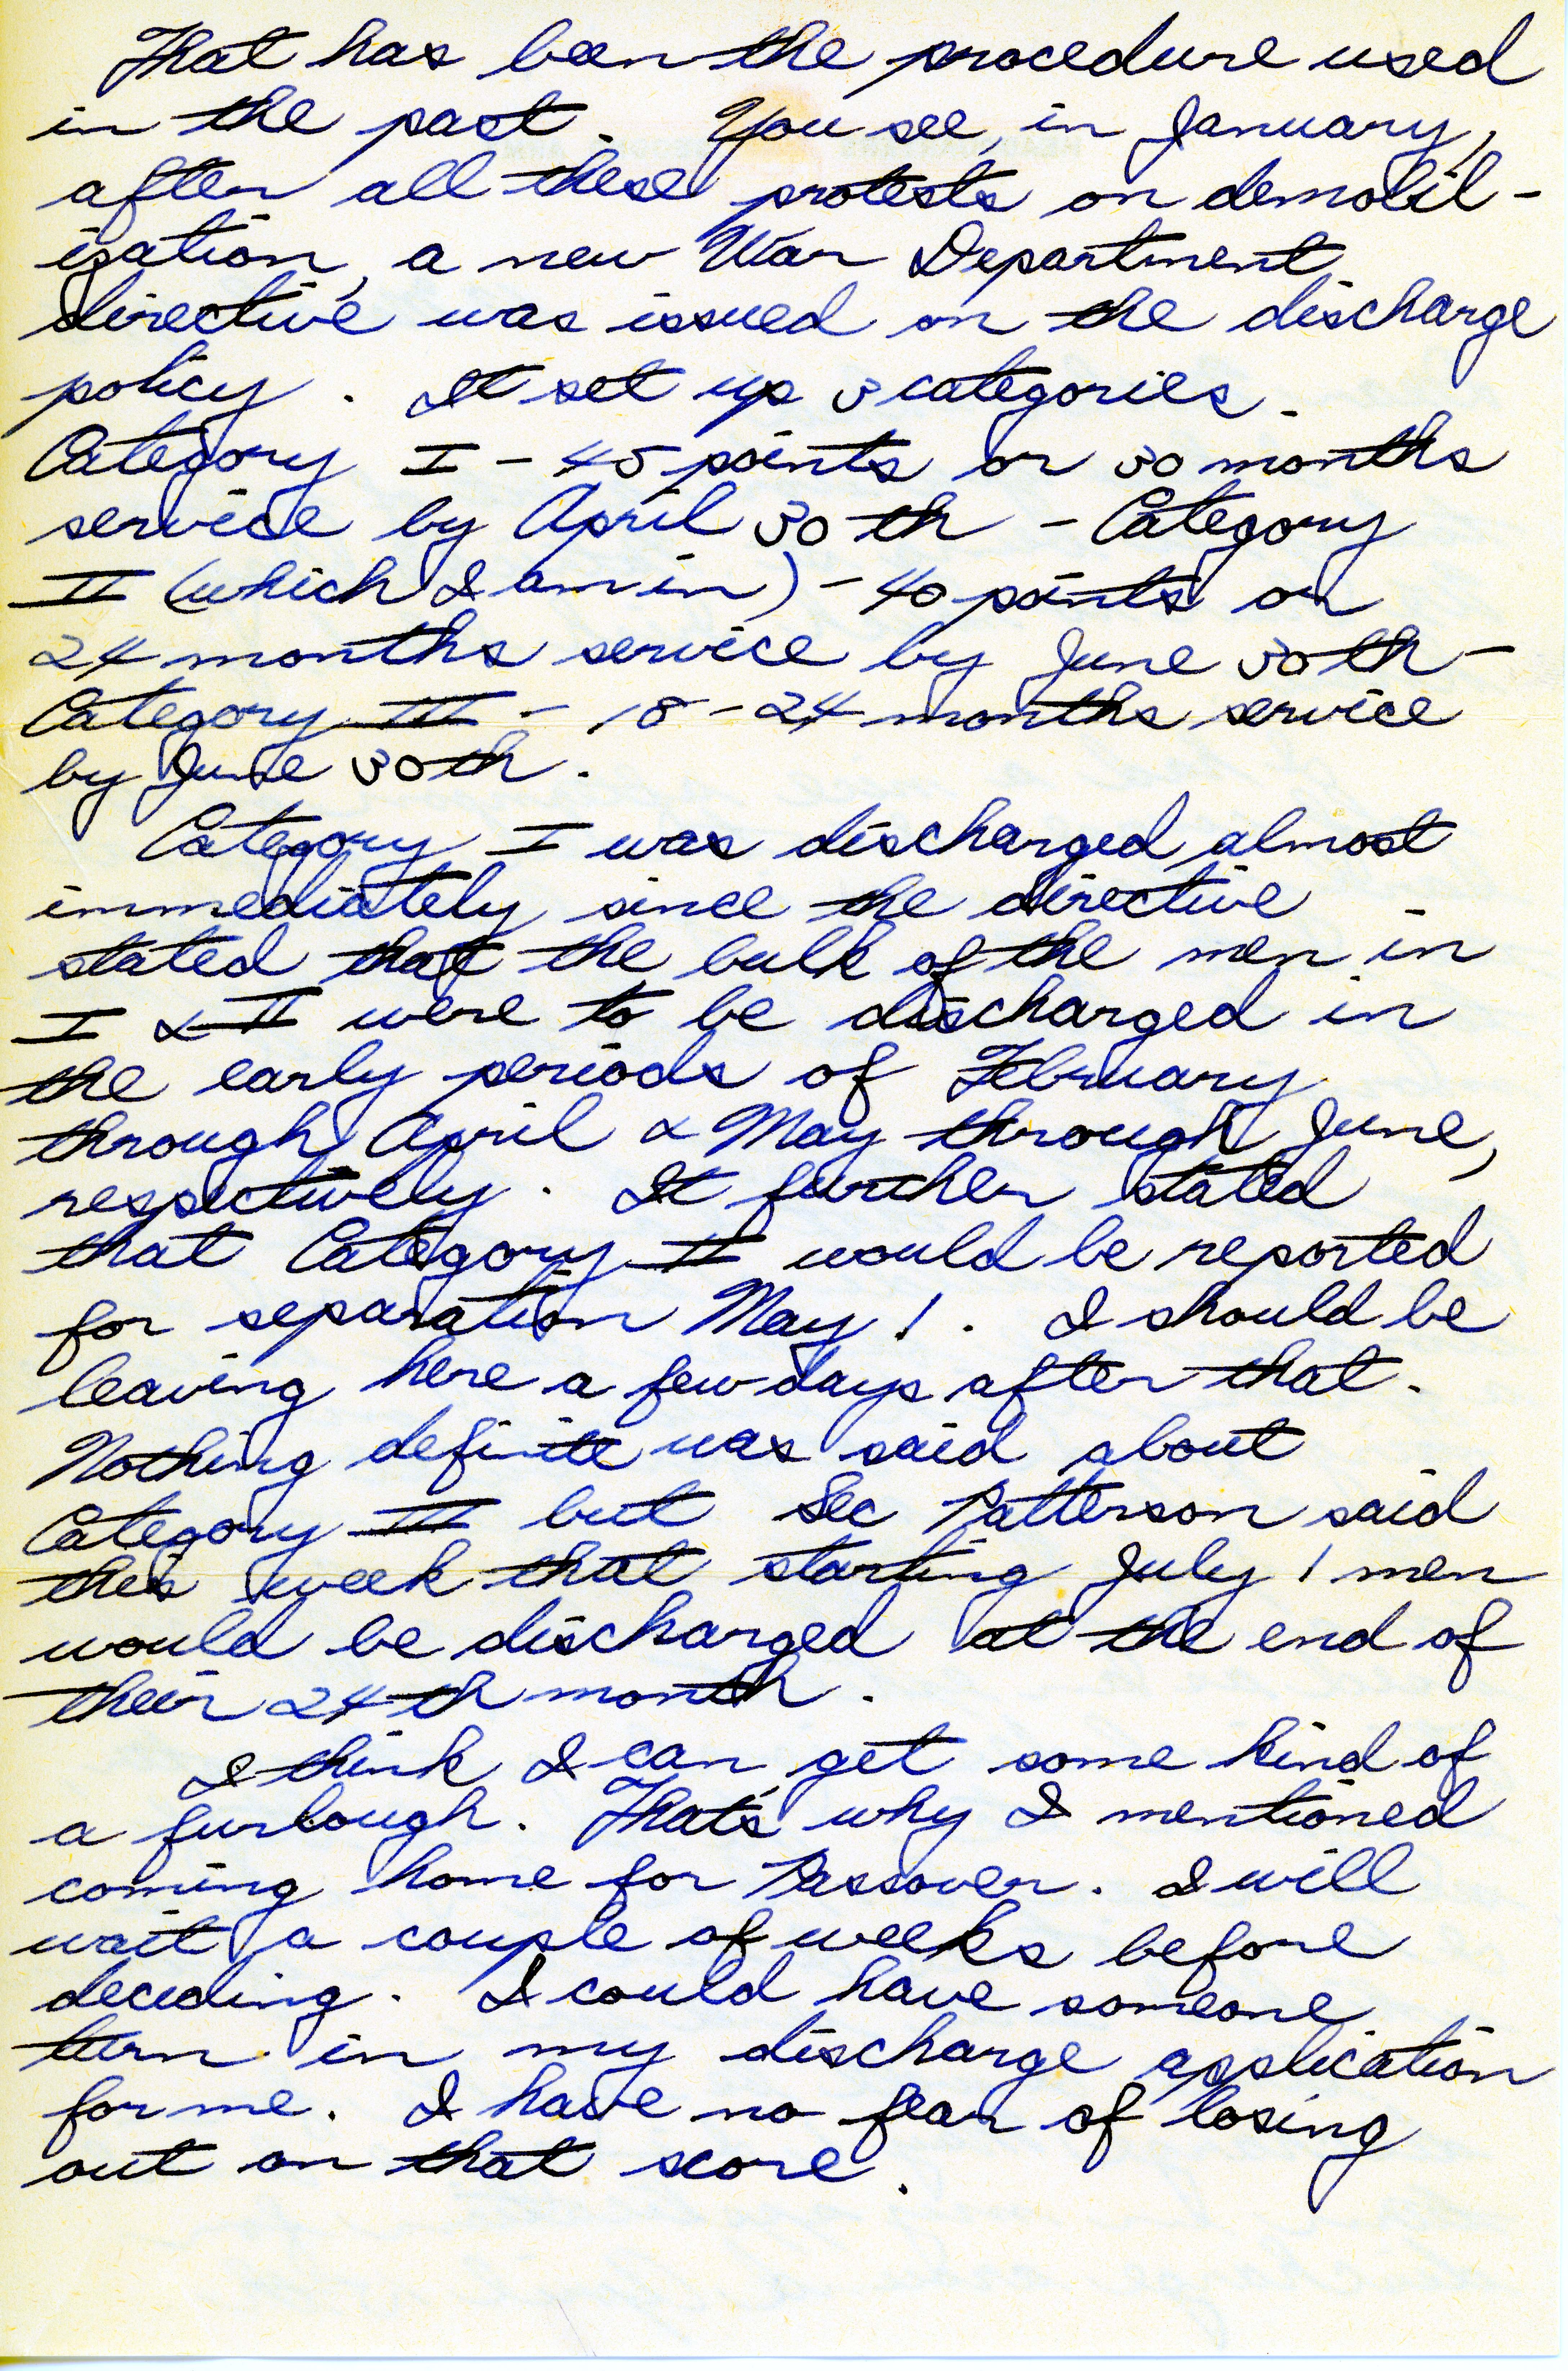 That has been the procedure used
in the past. You see, in January,
after all these protests on demobil-
ization, a new War Department
directive was issued on the discharge
policy. It set up 3 categories.
Category I - 45 points or 30 months
service by April 30th - Category
II (which I am in) - 40 points or
24 months service by June 30th -
Category III - 18-24 months service
by June 30th.
Category I was discharged almost
immediately since the directive
stated that the bulk of the men in
I & II were to be discharged in
the early periods of February
through April & May through June,
respectively. It further stated
that Category II would be reported
for separation May 1. I should be
leaving here a few days after that.
Nothing definite was said about
Category III but Sec Patterson said
this week that starting July 1 men
would be discharged at the end of
their 24th month.
I think I can get some kind of
a furlough. That's why I mentioned
coming home for Passover. I will
wait a couple of weeks before
deciding. I could have someone
turn in my discharge application
for me. I have no fear of losing
out on that score.